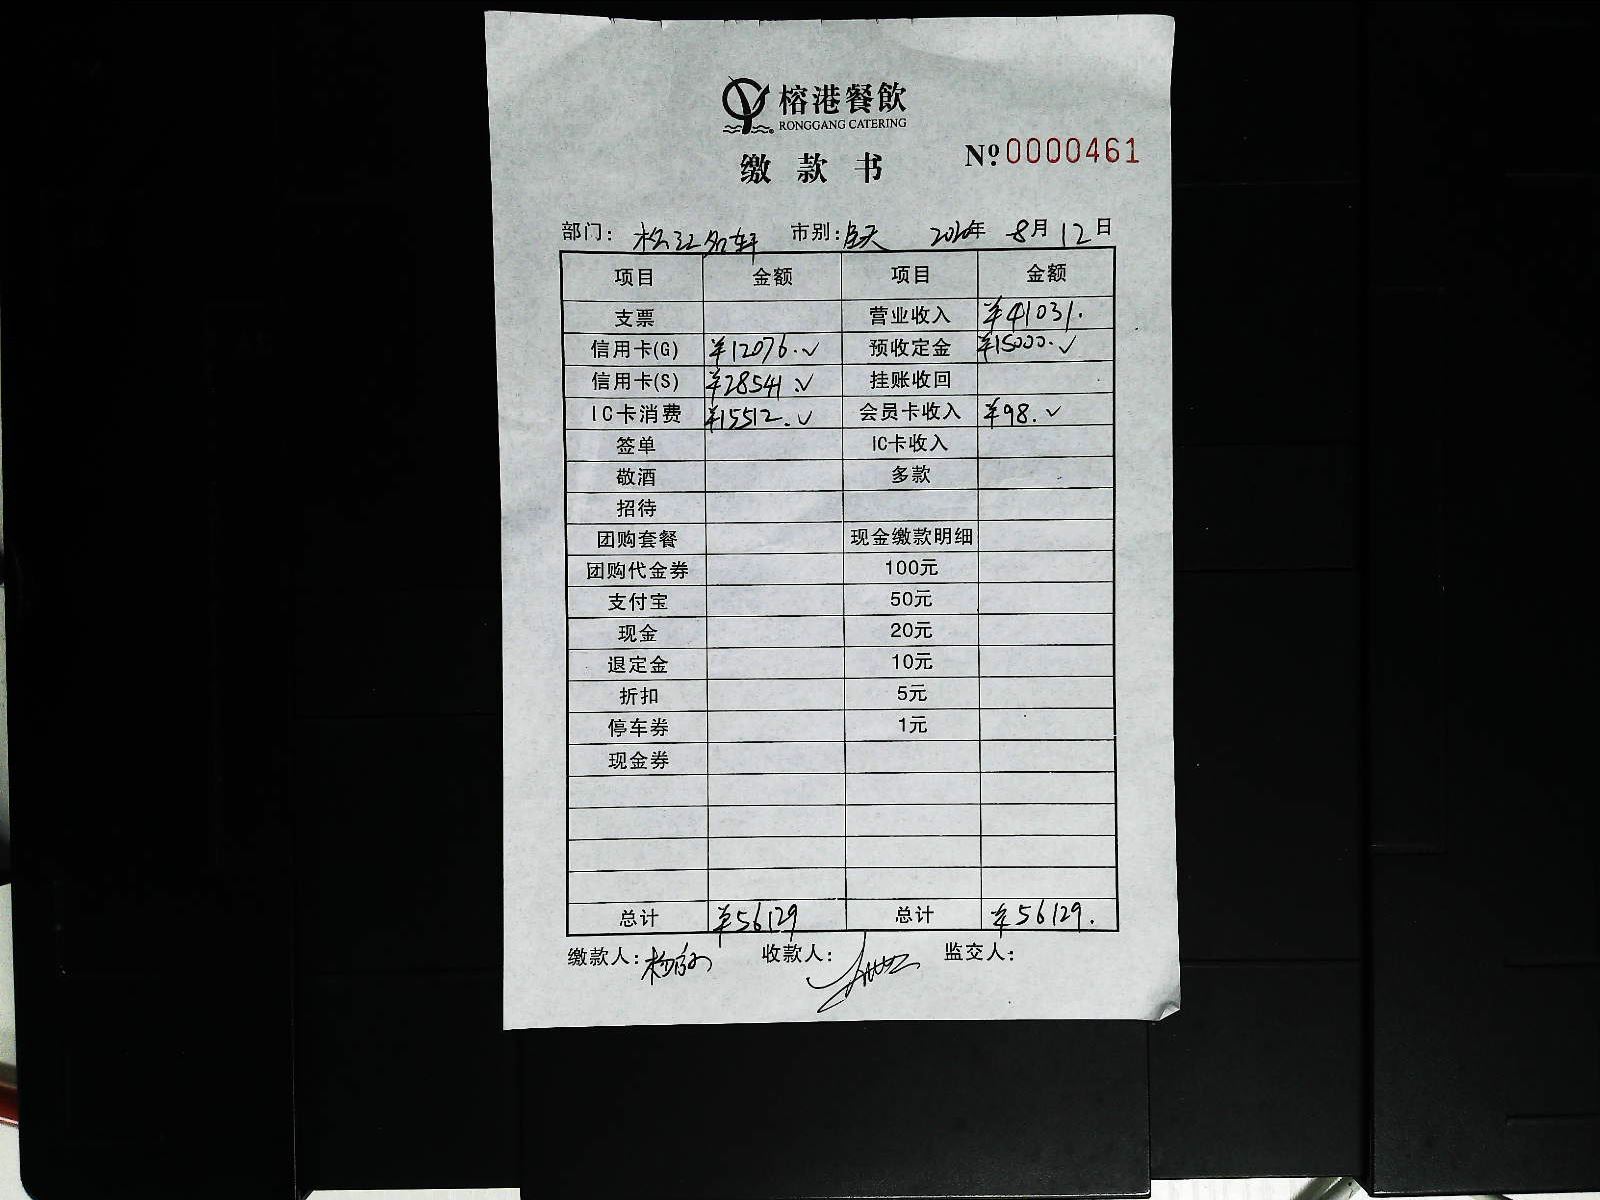 榕港餐飲
RONGGANG CATERING
缴款书 Nº.0000461
部门：松江名轩 市别：全天 2020年 8月12日
项目 金额 项目 金额
支票 营业收入 ¥41031.
信用卡(G) ¥12076.✓ 预收定金 ¥15000.✓
信用卡(S) ¥28541.✓ 挂账收回
IC卡消费 ¥15512.✓ 会员卡收入 ¥98.✓
签单 IC卡收入
敬酒 多款
招待
团购套餐 现金缴款明细
团购代金券 100元
支付宝 50元
现金 20元
退定金 10元
折扣 5元
停车券 1元
现金券
总计 ¥56129 总计 ¥56129.
缴款人： 收款人： 监交人：